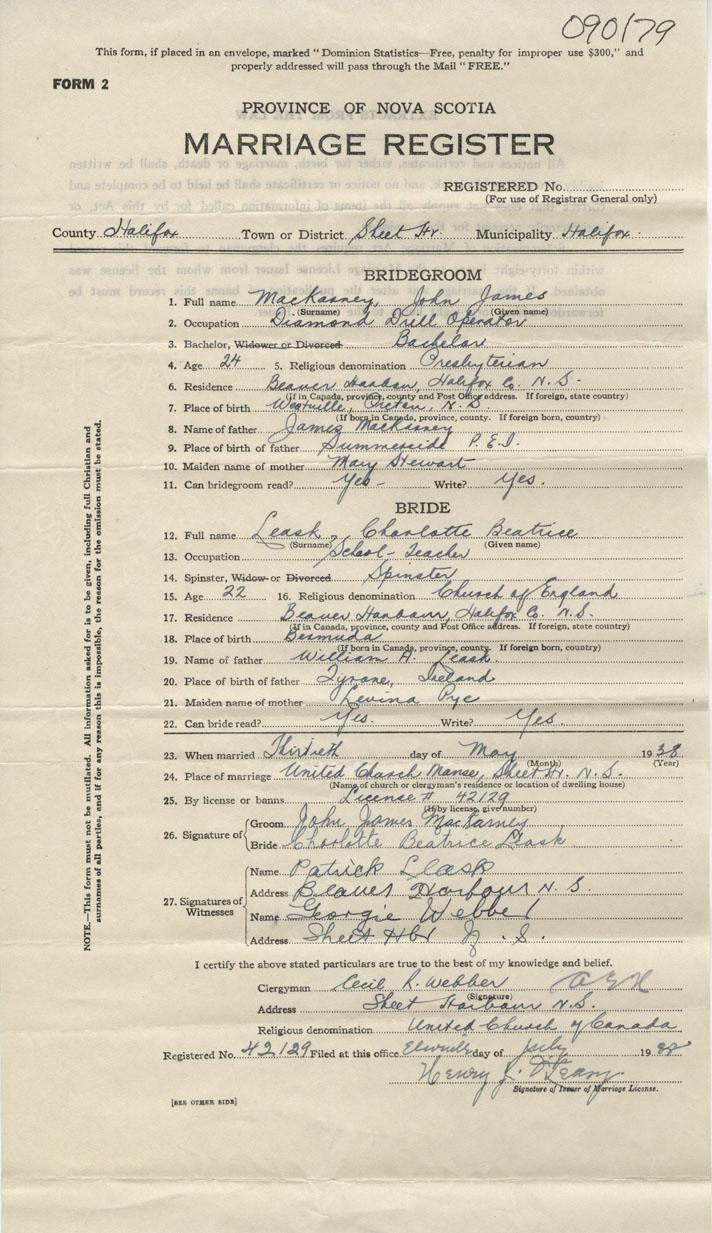 090179
This form, if placed in an envelope, marked "Dominion Statistics—Free, penalty for improper use $300," and
properly addressed will pass through the Mail "FREE."
FORM 2
PROVINCE OF NOVA SCOTIA
MARRIAGE REGISTER
REGISTERED No.
(For use of Registrar General only)
County Halifax Town or District Sheet Hr. Municipality Halifax.
BRIDEGROOM
1. Full name MacKarney, John James
(Surname) (Given name)
2. Occupation Diamond Drill Operator
3. Bachelor, Widower or Divorced Bachelor
4. Age 24 5. Religious denomination Presbyterian
6. Residence Beaver Harbour, Halifax Co. N. S.
(If in Canada, province, county and Post Office address. If foreign, state country)
7. Place of birth Westville, Pictou, N.S.
(If born in Canada, province, county. If foreign born, country)
8. Name of father James MacKarney
9. Place of birth of father Summerside P.E.I.
10. Maiden name of mother Mary Stewart
11. Can bridegroom read? Yes- Write? Yes.
BRIDE
12. Full name Leask, Charlotte Beatrice
(Surname) (Given name)
13. Occupation School-Teacher
14. Spinster, Widow or Divorced Spinster
15. Age 22 16. Religious denomination Church of England
17. Residence Beaver Harbour, Halifax Co. N.S.
(If in Canada, province, county and Post Office address. If foreign, state country)
18. Place of birth Bermuda
(If born in Canada, province, county. If foreign born, country)
19. Name of father William H. Leask.
20. Place of birth of father Tyrone, Ireland
21. Maiden name of mother Levina Pye
22. Can bride read? Yes. Write? Yes.
23. When married Thirtieth day of May 1938
(Month) (Year)
24. Place of marriage United Church Manse, Sheet Hr. N.S.
(Name of church or clergyman's residence or location of dwelling house)
25. By license or banns License # 42129
(If by license, give number)
26. Signature of
Groom John James MacKarney
Bride Charlotte Beatrice Leask
27. Signatures of Witnesses
Name Patrick Leask
Address Beaver Harbour N.S.
Name Georgie Webber
Address Sheet Hbr N. S.
I certify the above stated particulars are true to the best of my knowledge and belief.
Clergyman Cecil R. Webber
(Signature)
Address Sheet Harbour N.S.
Religious denomination United Church of Canada
Registered No. 42129 Filed at this office day of July 1938
Henry J.
Signature of Issuer of Marriage License.
[SEE OTHER SIDE]
NOTE.—This form must not be mutilated. All information asked for is to be given, including full Christian and
surnames of all parties, and if for any reason this is impossible, the reason for the omission must be stated.